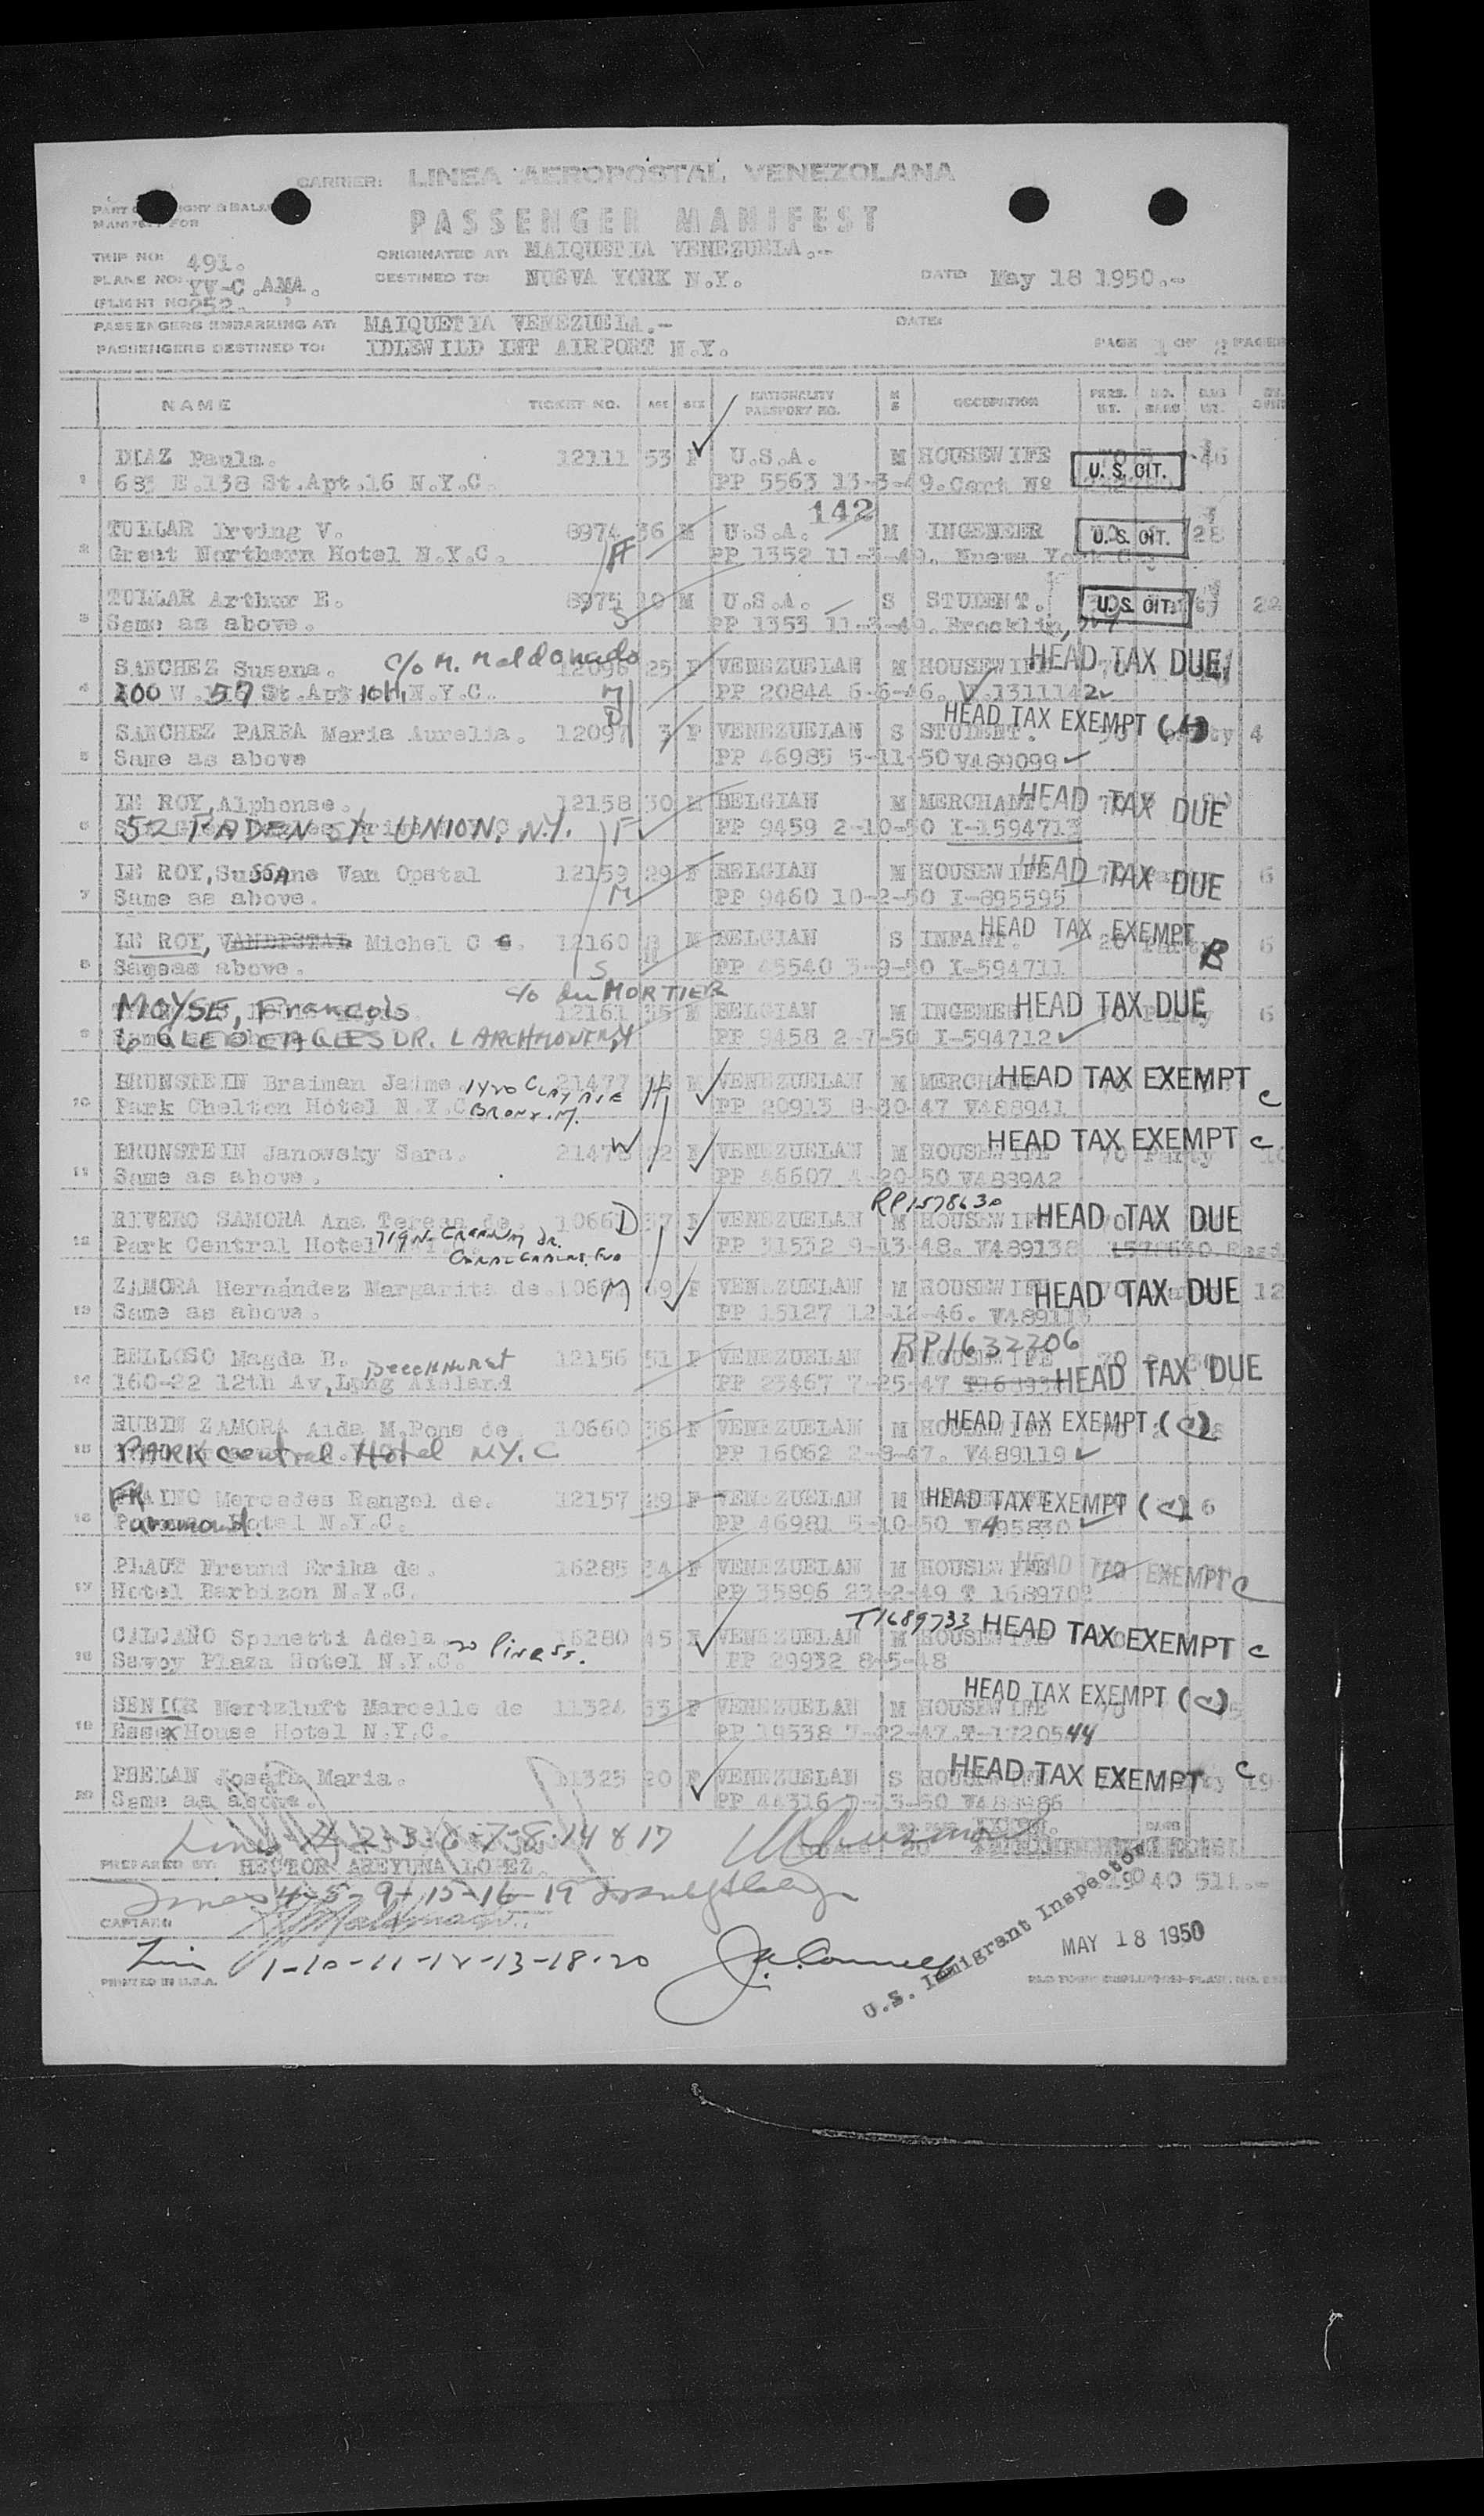 CARRIER: LINEA AEROPOSTAL VENEZOLANA
PASSENGER MANIFEST
TRIP NO: 491.
ORIGINATED AT: MAIQUETIA VENEZUELA.--
PLANE NO: YV-C.AMA.
DESTINED TO: NUEVA YORK N.Y.
DATE May 18 1950.--
(FLIGHT NO 252. )
PASSENGERS EMBARKING AT: MAIQUETIA VENEZUELA.-
DATE:
PASSENGERS DESTINED TO: IDLEWILD INT AIRPORT N.Y.
PAGE 1 OF 2 PAGES
NAME TICKET NO. AGE SEX NATIONALITY PASSPORT NO. M S OCCUPATION PERS. WT. NO. BAGS BAG WT.
DIAZ Paula. 12111 53 F U.S.A. M HOUSEWIFE 46
1 683 E.138 St.Apt.16 N.Y.C. PP 5563 13-3-49.Cert Nº U.S. CIT.
142
TOLLAR Irving V. 8974 36 M U.S.A. M INGENEER U.S. CIT. 28
2 Great Northern Hotel N.Y.C. H PP 1352 11-3-49. Nueva York
TOLLAR Arthur E. 8975 10 M U.S.A. S STUDENT. U.S. CIT. 22
3 Same as above. S PP 1353 11-3-49. Brocklin,
SANCHEZ Susana. c/o M. Maldonado 12096 25 F VENEZUELAN M HOUSEWIFE HEAD TAX DUE
4 200 W. 57 St.Apt 10H, N.Y.C. M PP 20844 6-6-46. V.1311142
SANCHEZ PARRA Maria Aurelia. 12097 3 F VENEZUELAN S STUDENT. HEAD TAX EXEMPT 4
5 Same as above D PP 46985 5-11-50 V489099
LE ROY, Alphonse. 12158 30 M BELGIAN M MERCHANT HEAD TAX DUE
6 52 PADEN St. UNION, N.Y. F PP 9459 2-10-50 I-1594713
LE ROY, Sussane Van Opstal 12159 29 F BELGIAN M HOUSEWIFE HEAD TAX DUE 6
7 Same as above. M PP 9460 10-2-50 I-895595
LE ROY, VANOPSTAL Michel C 12160 M BELGIAN S INFANT. 20 HEAD TAX EXEMPT B 6
8 Sameas above. S PP 45540 3-9-50 I-594711
MOYSE, François c/o du MORTIER 12161 35 M BELGIAN M INGENEER HEAD TAX DUE 6
9 6 GLEDEAGLES DR. LARCHMONT N.Y PP 9458 2-7-50 I-594712
BRUNSTEIN Braiman Jaime 1420 CLAY AVE 21477 H M VENEZUELAN M MERCHANT HEAD TAX EXEMPT C
10 Park Chelton Hotel N.Y.C. BRONX. PP 20913 8-30-47 V488941
BRUNSTEIN Janowsky Sara. 21478 W 22 F VENEZUELAN M HOUSEWIFE 70 Party HEAD TAX EXEMPT C
11 Same as above. PP 46607 4-20-50 V488942
RP1578630
RIVERO SAMORA Ana Teresa de. 10661 D 37 F VENEZUELAN M HOUSEWIFE HEAD TAX DUE
12 Park Central Hotel PP 31532 9-13-48. V489138
ZAMORA Hernández Margarita de. 10662 M 69 F VENEZUELAN M HOUSEWIFE HEAD TAX DUE 12
13 Same as above. PP 15127 12-12-46.
RP1632206
BELLOSO Magda E. BEECHHURST 12156 51 F VENEZUELAN M HOUSEWIFE 70
14 160-22 12th Av, Long Aisland PP 23467 7-25-47 HEAD TAX DUE
RUBIN ZAMORA Aida M.Pons de 10660 36 F VENEZUELAN M HOUSEWIFE HEAD TAX EXEMPT (C)
15 PARK Central Hotel N.Y.C PP 16062 2-8-47. V489119
FRAINO Mercedes Rangel de. 12157 29 F VENEZUELAN M HEAD TAX EXEMPT (C) 6
16 Paramount. Hotel N.Y.C. PP 46981 5-10-50 V495830
PLAUT Freund Erika de. 16285 34 F VENEZUELAN M HOUSEWIFE 70 HEAD TAX EXEMPT C
17 Hotel Barbizon N.Y.C. PP 35896 23-2-49 T 168970
T1689733
CALCAÑO Spinetti Adela 16280 45 F VENEZUELAN M HOUSEWIFE HEAD TAX EXEMPT C
18 Savoy Plaza Hotel N.Y.C. PP 29932 8-5-48
SENIOR Hertzluft Marcelle de 11324 63 F VENEZUELAN M HOUSEWIFE HEAD TAX EXEMPT (C)
19 Essex House Hotel N.Y.C. PP 19538 7-22-47.T-1720544
PHELAN Josefa Maria. 11325 20 F VENEZUELAN S HEAD TAX EXEMPT C 19
20 Same as above. PP 44316 V488986
Lines 2-3-6-7-8-14 & 17
PREPARED BY: HECTOR AREYUNA LOPEZ.
Lines 4-5-9-15-16-19
CAPTAIN
Lin 1-10-11-12-13-18-20
U.S. Immigrant Inspector
MAY 18 1950
PRINTED IN U.S.A.